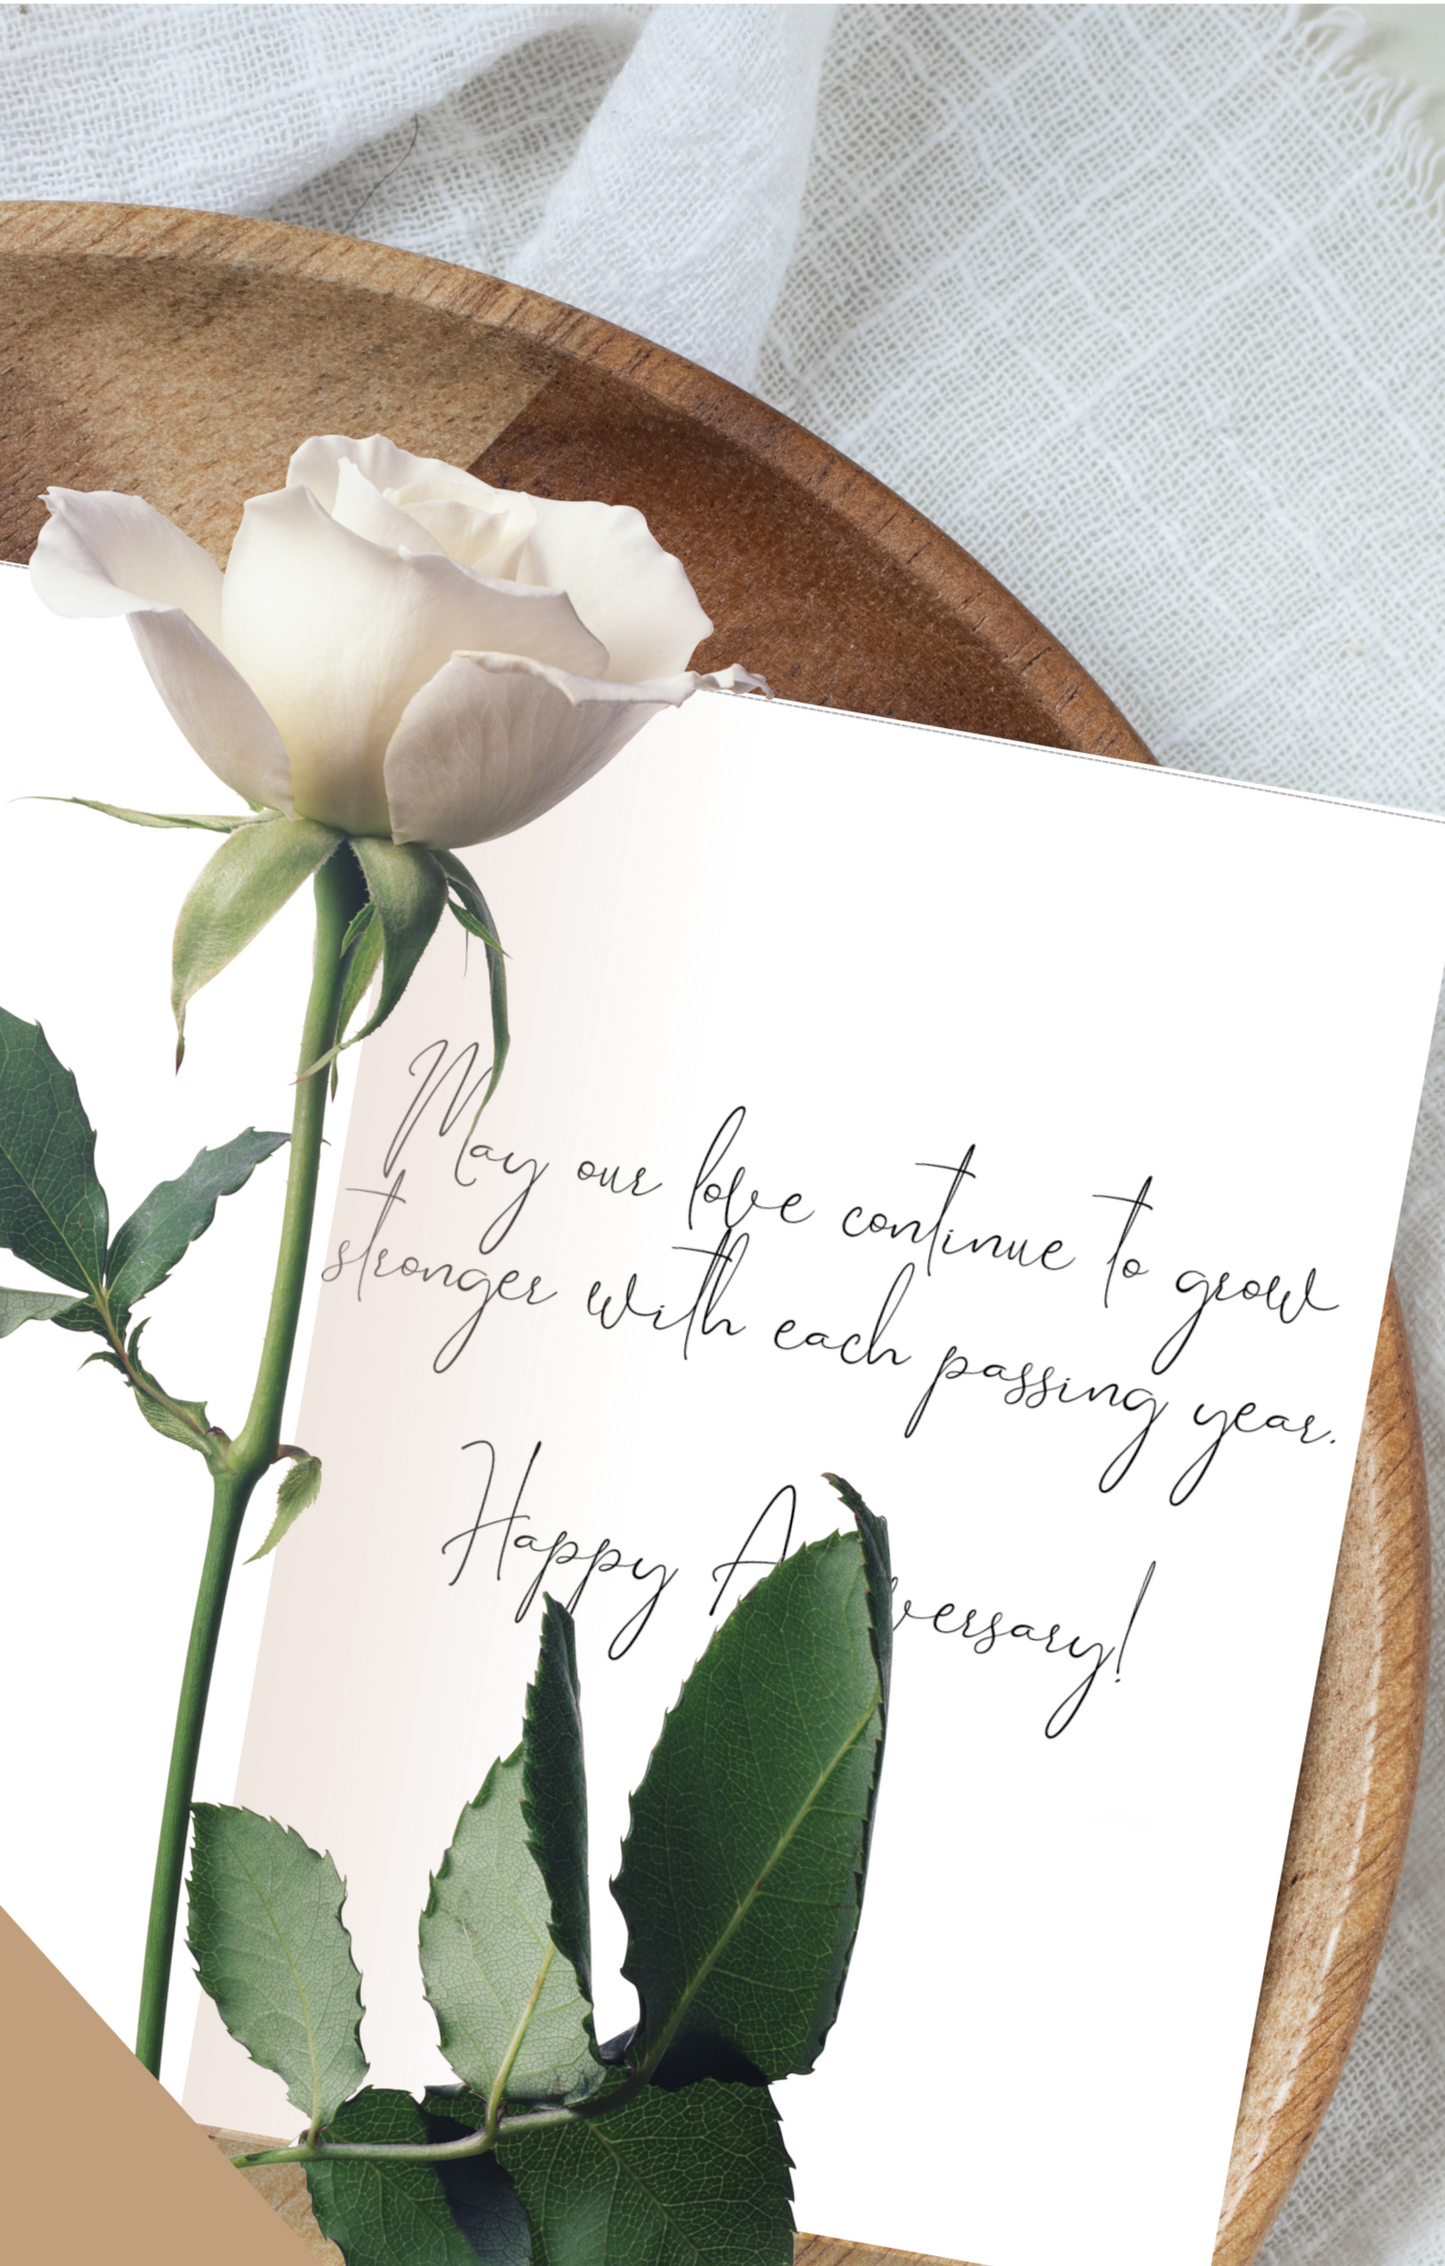 May our love continue to grow
stronger with each passing year.
Happy A versary!